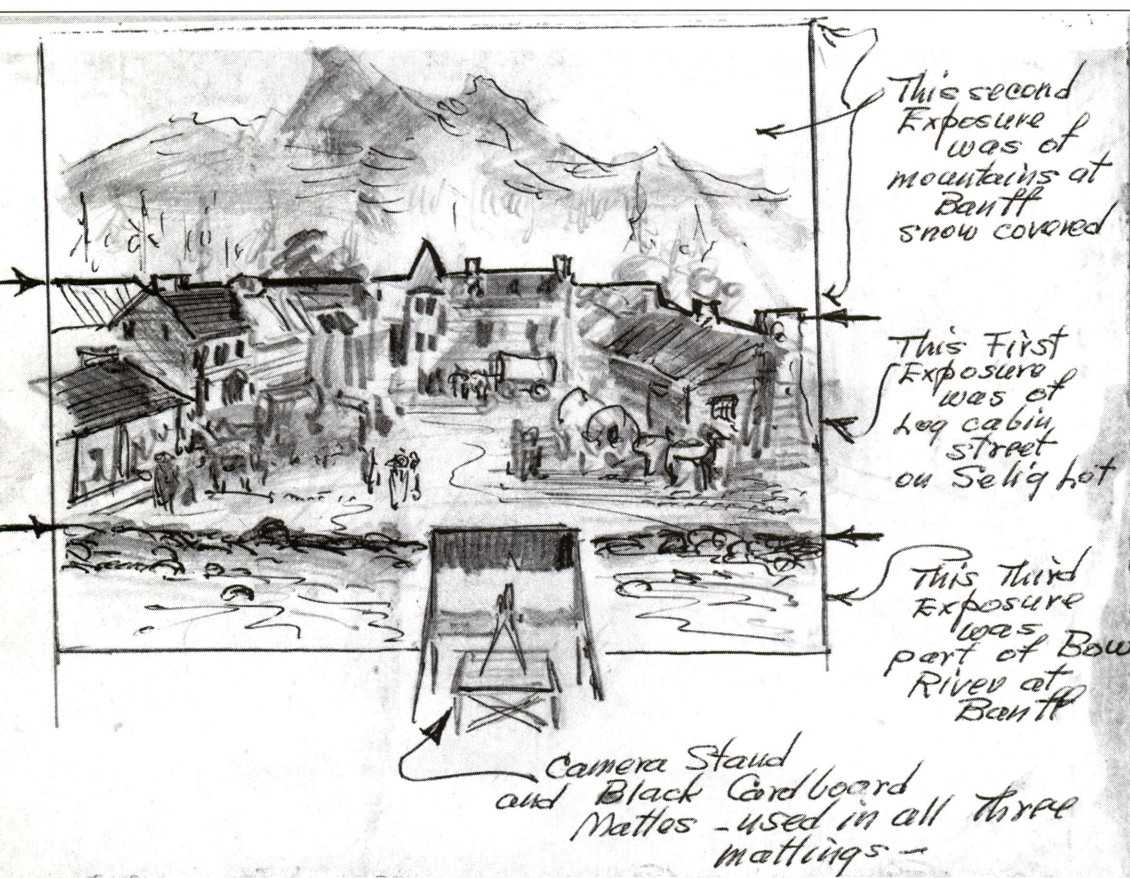 This second
Exposure
was of
mountains at
Banff
snow covered
This First
Exposure
was of
Log cabin
street
on Selig Lot
This Third
Exposure
was
part of Bow
River at
Banff
Camera Stand
and Black Cardboard
Mattes - used in all three
mattings -